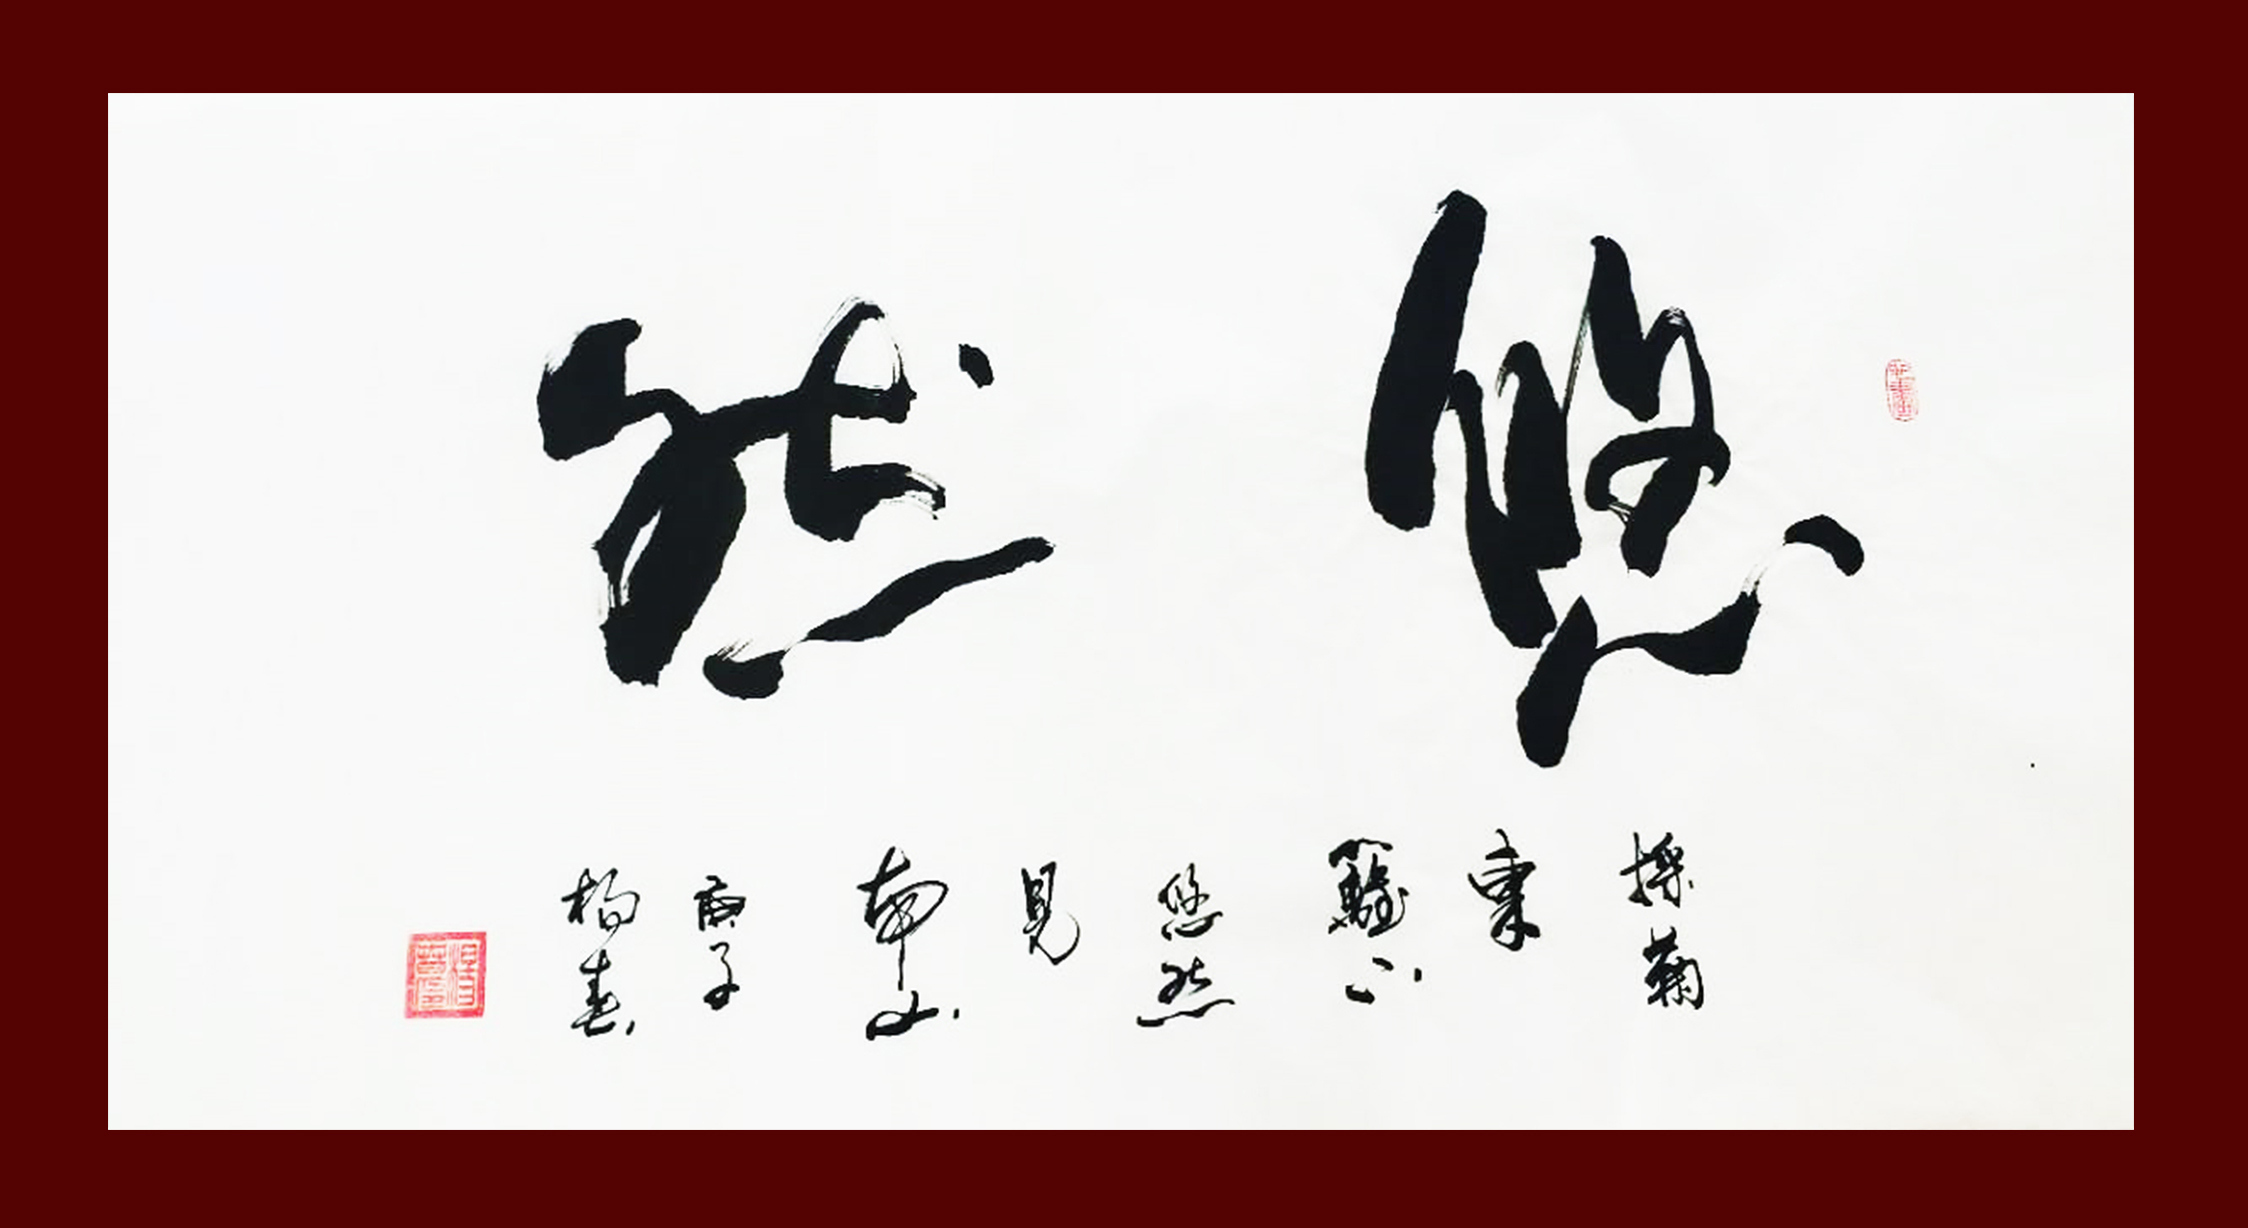 悠然
採菊
東
籬下
悠然
見
南山
庚子
楊春